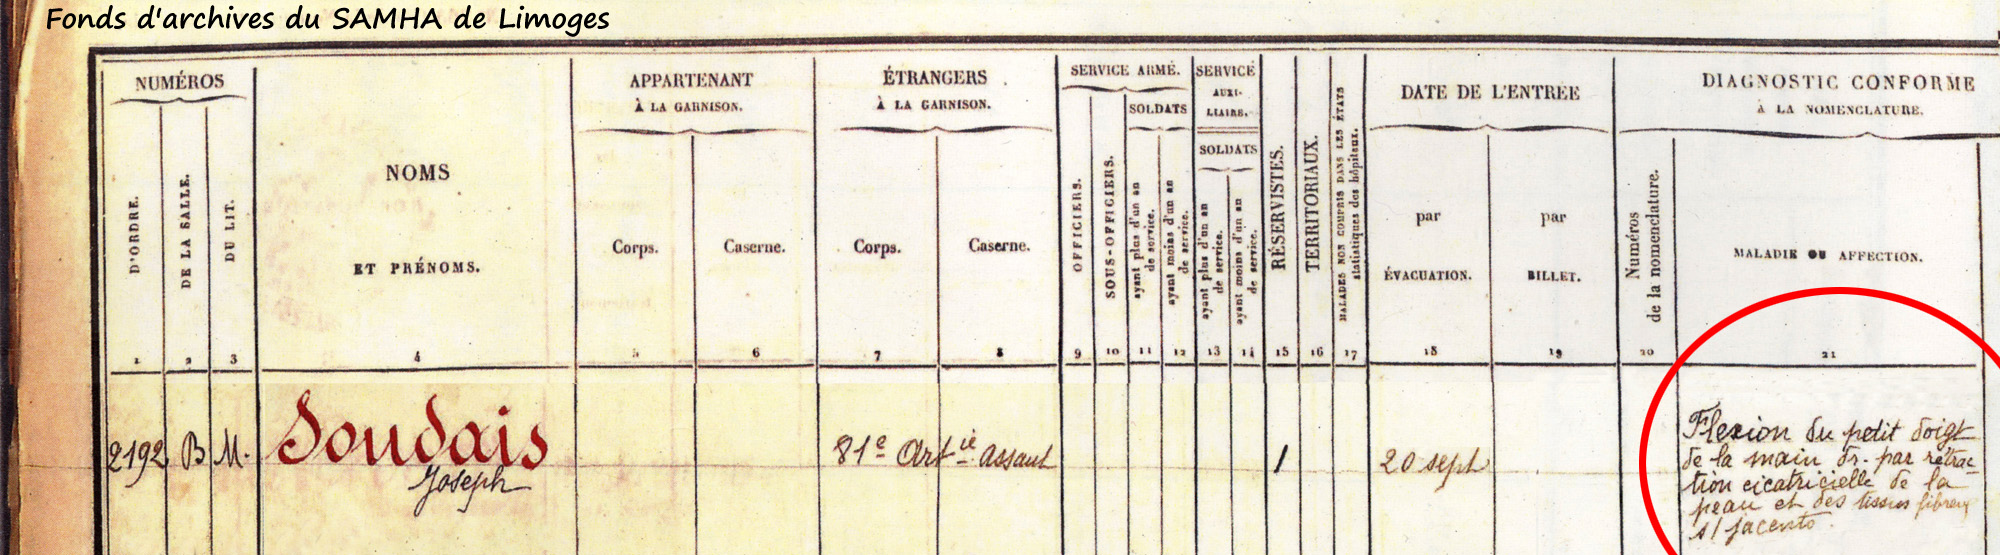 Fonds d'archives du SAMHA de Limoges
NUMÉROS
D'ORDRE.
DE LA SALLE.
DU LIT.
NOMS
ET PRÉNOMS.
APPARTENANT
À LA GARNISON.
Corps.
Caserne.
ÉTRANGERS
À LA GARNISON.
Corps.
Caserne.
SERVICE ARMÉ.
OFFICIERS.
SOUS-OFFICIERS.
SOLDATS
ayant plus d'un an
de service.
ayant moins d'un an
de service.
SERVICE
AUXI-
LIAIRE.
SOLDATS
ayant plus d'un an
de service.
ayant moins d'un an
de service.
RÉSERVISTES.
TERRITORIAUX.
MALADES NON COMPRIS DANS LES ÉTATS
statistiques des hôpitaux.
DATE DE L'ENTRÉE
par
ÉVACUATION.
par
BILLET.
DIAGNOSTIC CONFORME
À LA NOMENCLATURE.
Numéros
de la nomenclature.
MALADIE OU AFFECTION.
1 2 3 4 5 6 7 8 9 10 11 12 13 14 15 16 17 18 19 20 21
2192 B M. Soudais 81e Artie assaut 1 20 sept
Joseph
Flexion du petit doigt
de la main dr. par rétrac-
tion cicatricielle de la
peau et des tissus fibreux
s/ jacents.